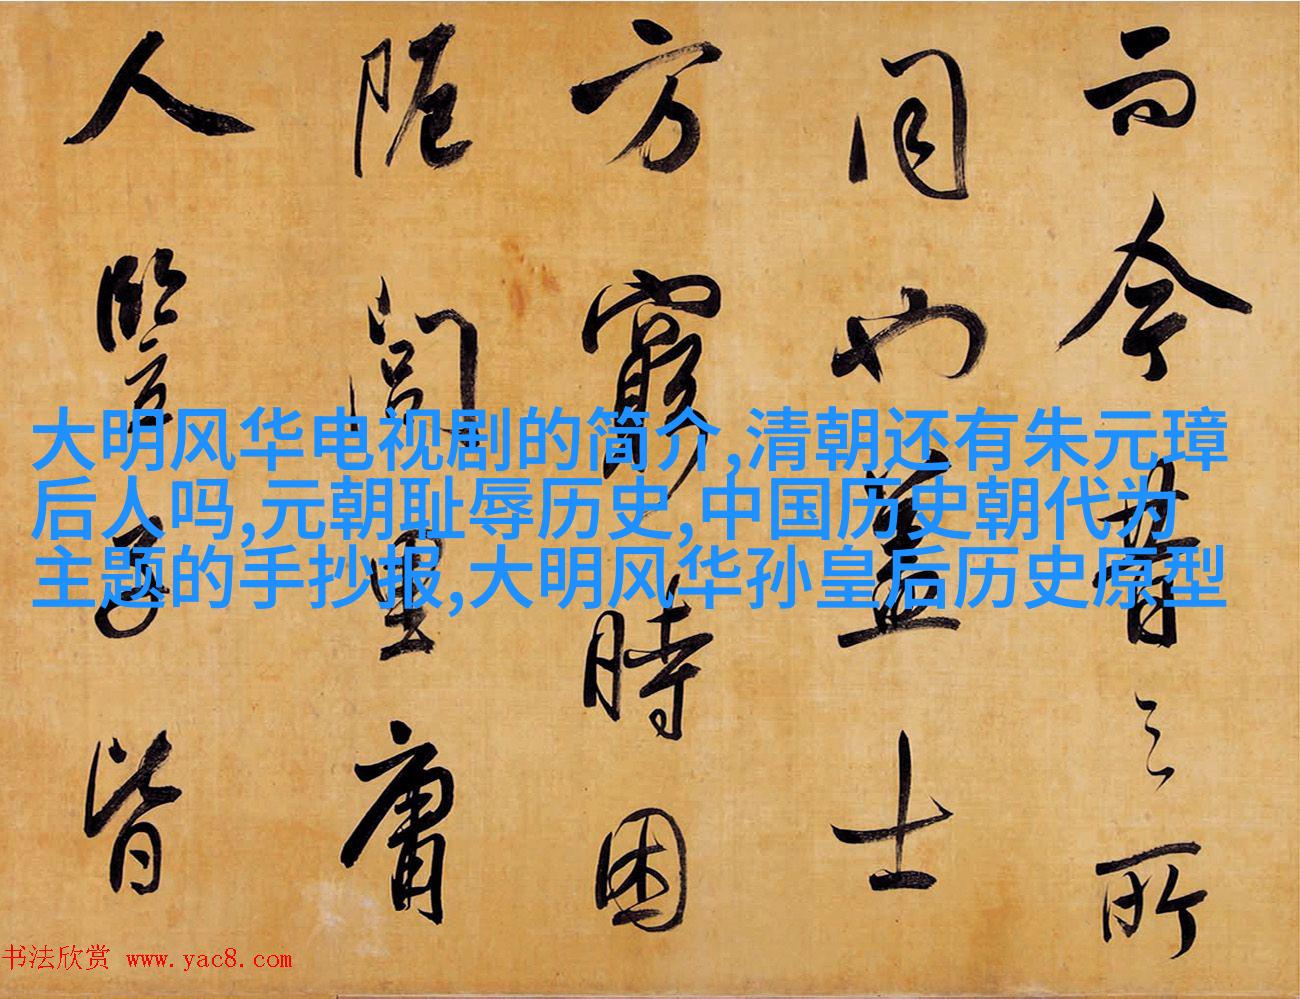 而今昔之所
同也蓋士
方窮時困
阨閭里庸
人豎子皆
大明风华电视剧的简介,清朝还有朱元璋
后人吗,元朝耻辱历史,中国历史朝代为
主题的手抄报,大明风华孙皇后历史原型
书法欣赏 www.yac8.com